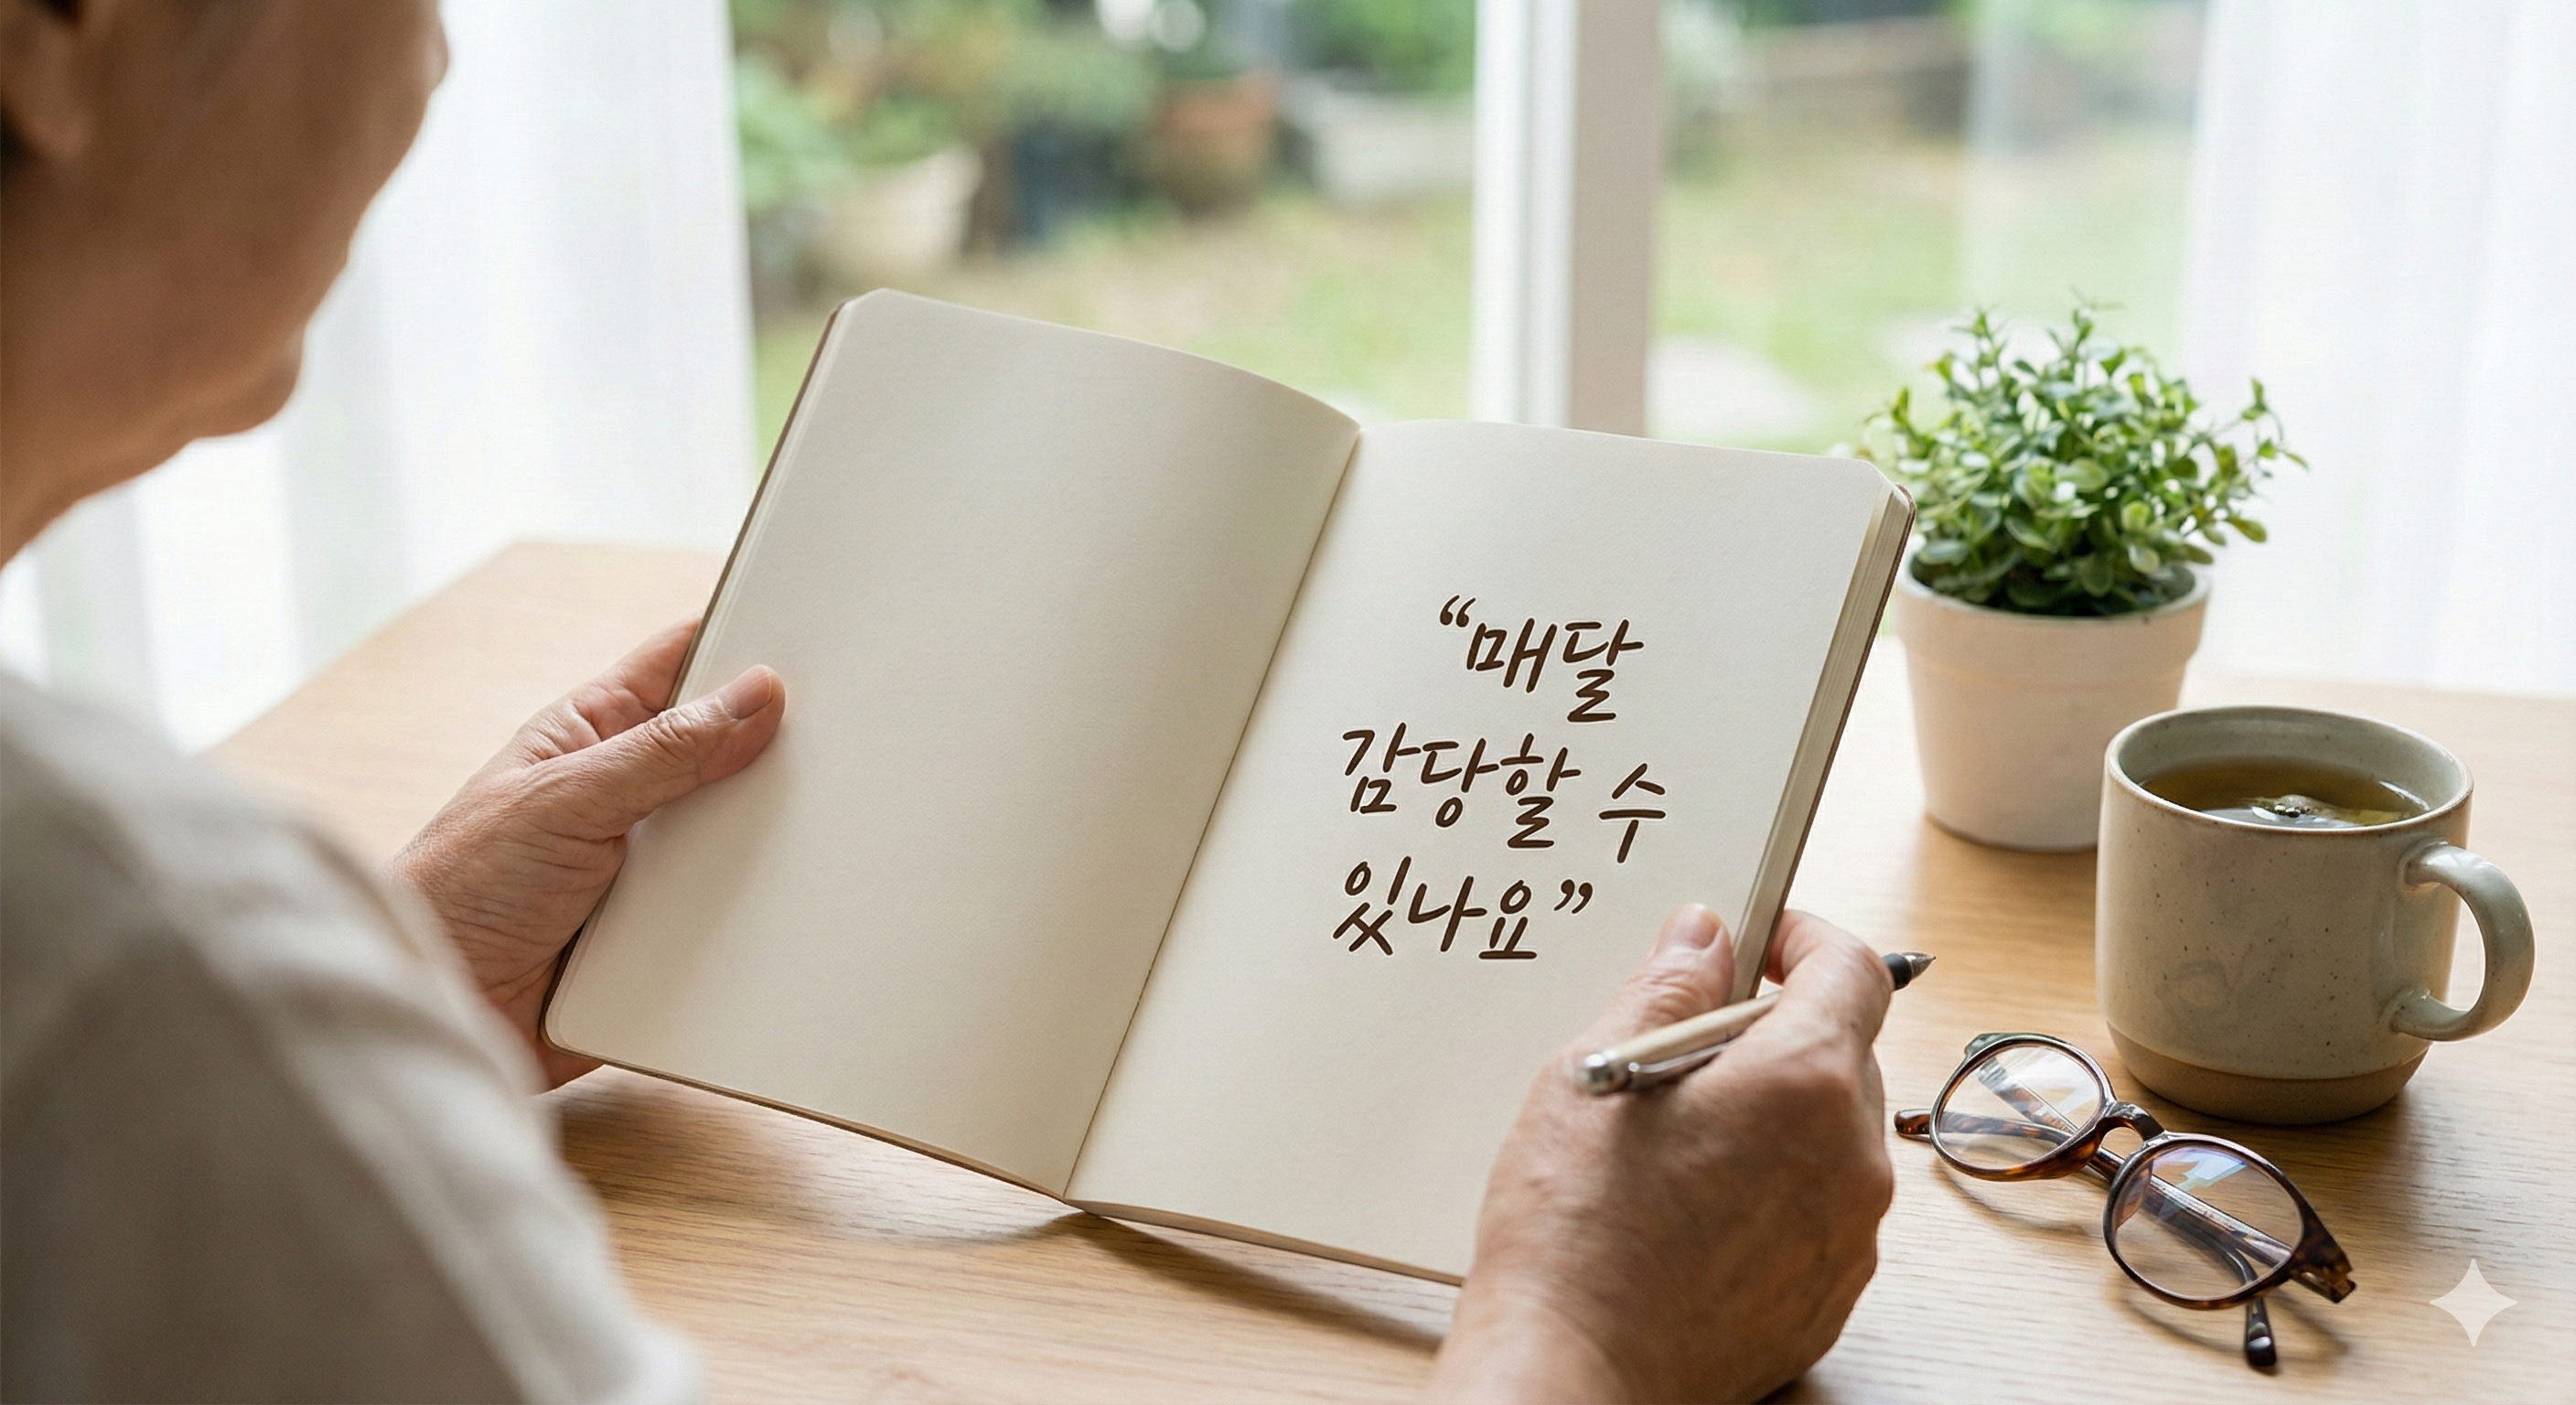 “매달
감당할 수
있나요”